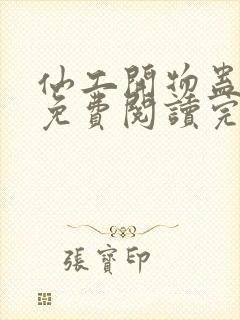 仙工開物蠱
免費閱讀完
張寶印